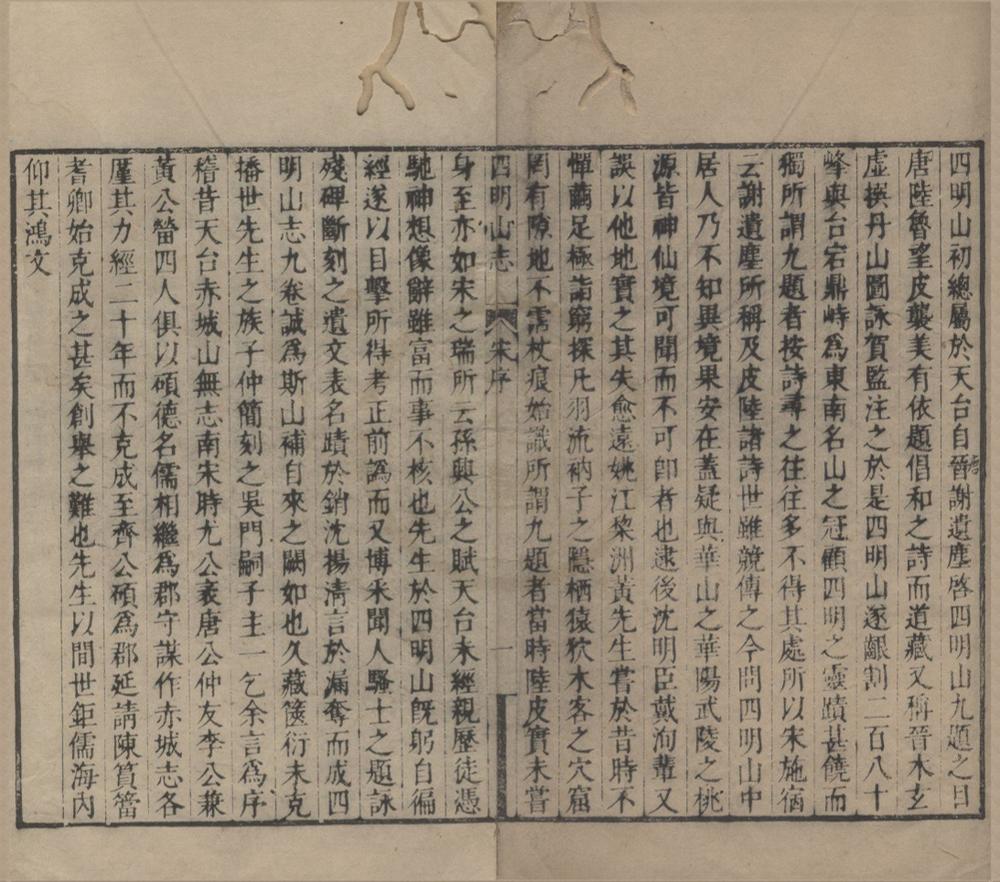 四明山初總屬於天台自晉謝遺塵啓四明山九題之目
唐陸魯望皮襲美有依題倡和之詩而道藏又稱晉木玄
虛撰丹山圖詠賀監注之於是四明山遂齦割二百八十
峰與台宕鼎峙為東南名山之冠顧四明之靈蹟甚饒而
獨所謂九題者按詩尋之往往多不得其處所以宋施宿
云謝遺塵所稱及皮陸諸詩世雖競傳之今問四明山中
居人乃不知異境果安在蓋疑與華山之華陽武陵之桃
源皆神仙境可聞而不可卽者也逮後沈明臣戴洵輩又
誤以他地實之其失愈遠姚江棃洲黃先生嘗於昔時不
憚繭足極詣窮探凡羽流衲子之隱栖猿狖木客之穴窟
罔有隙地不霑杖痕始識所謂九題者當時陸皮實未嘗
四明山志 宋序 一
身至亦如宋之瑞所云孫興公之賦天台未經親歷徒憑
馳神想像辭雖富而事不核也先生於四明山旣躬自徧
經遂以目擊所得考正前譌而又博采聞人騷士之題詠
殘碑斷刻之遺文表名蹟於銷沈揚清言於漏奪而成四
明山志九卷誠為斯山補自來之闕如也久藏篋衍未克
播世先生之族子仲簡刻之吳門嗣子主一乞余言為序
稽昔天台赤城山無志南宋時尤公袤唐公仲友李公兼
黃公㽦四人俱以碩德名儒相繼為郡守謀作赤城志各
厪其力經二十年而不克成至齊公碩為郡延請陳筼窻
耆卿始克成之甚矣創舉之難也先生以間世鉅儒海內
仰其鴻文